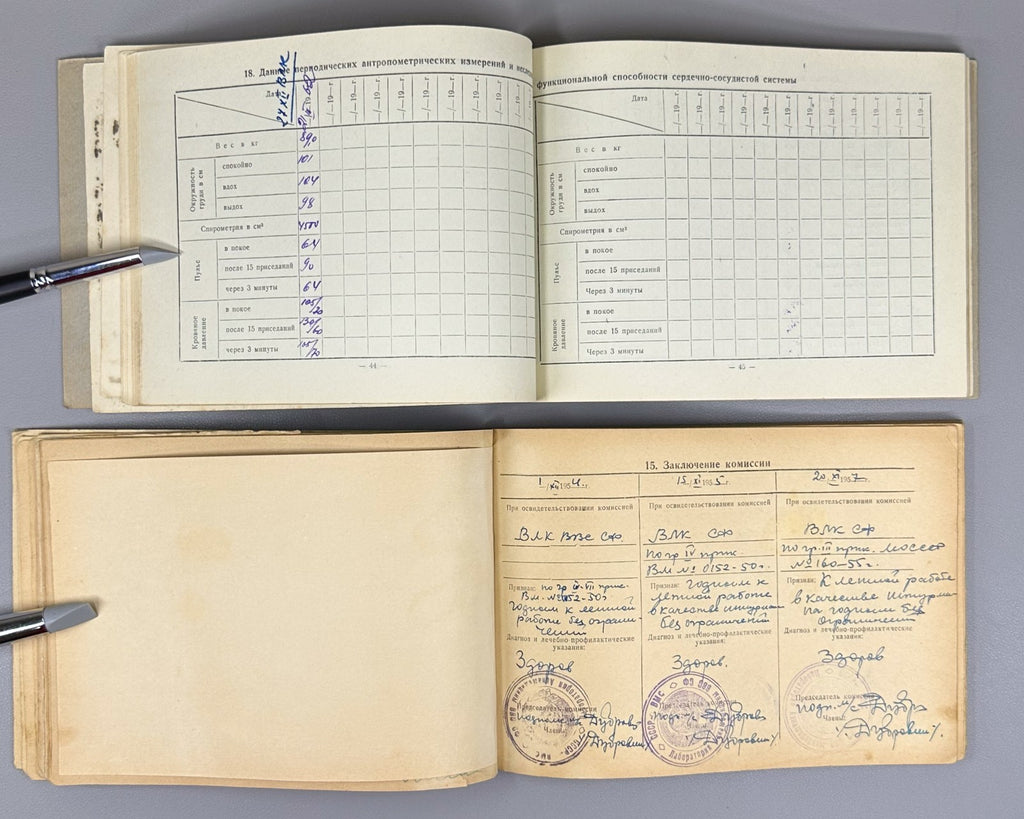 18. Данные периодических антропометрических измерений и
функциональной способности сердечно-сосудистой системы
24 XII ВЛК
Дата
Вес в кг 89,0
Окружность груди в см
спокойно 101
вдох 104
выдох 98
Спирометрия в см³ 4500
Пульс
в покое 64
после 15 приседаний 90
через 3 минуты 64
Кровяное давление
в покое 105/
после 15 приседаний 130/60
через 3 минуты 105/70
— 44 —
Дата
/—19—г.
Вес в кг
Окружность груди в см
спокойно
вдох
выдох
Спирометрия в см³
Пульс
в покое
после 15 приседаний
Через 3 минуты
Кровяное давление
в покое
после 15 приседаний
Через 3 минуты
— 45 —
15. Заключение комиссии
1/XII 1954 г.
При освидетельствовании комиссией
ВЛК ВВС СФ.
Признан: по гр. III-VII прик.
В.М. № 0152-50г.
годным к летной
работе без ограни-
чений
Диагноз и лечебно-профилактические
указания:
Здоров
Председатель комиссии
Члены:
15/XI 1955 г.
При освидетельствовании комиссией
ВЛК СФ
по гр. IV прик.
ВМ № 0152-50г.
Признан: годным к
летной работе
в качестве штурмана
без ограничений
Диагноз и лечебно-профилактические
указания:
Здоров.
Председатель
Члены:
СССР ВМС
Лаборатория
20/XI 1957 г.
При освидетельствовании комиссией
ВЛК СФ
по гр. III прик. МОСССР
№ 160-55г.
Признан: К летной работе
в качестве штурма-
на годным без
ограничений
Диагноз и лечебно-профилактические
указания:
Здоров
Председатель комиссии
Члены: